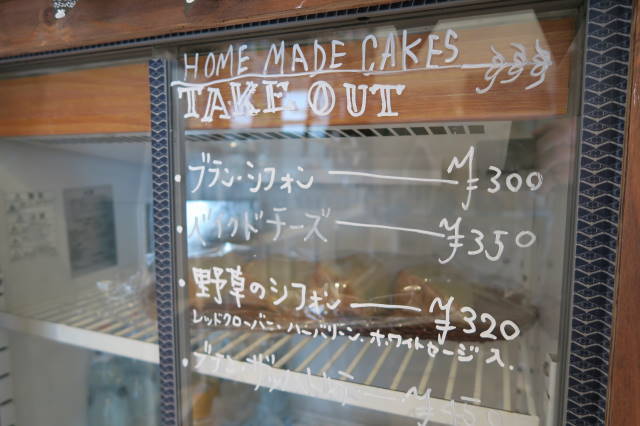 HOME MADE CAKES
TAKE OUT
・ブラン・シフォン ¥300
・ベイクドチーズ ¥350
・野草のシフォン ¥320
レッドクローバー、ハーバリーン、ホワイトセージ入.
・ブラン・